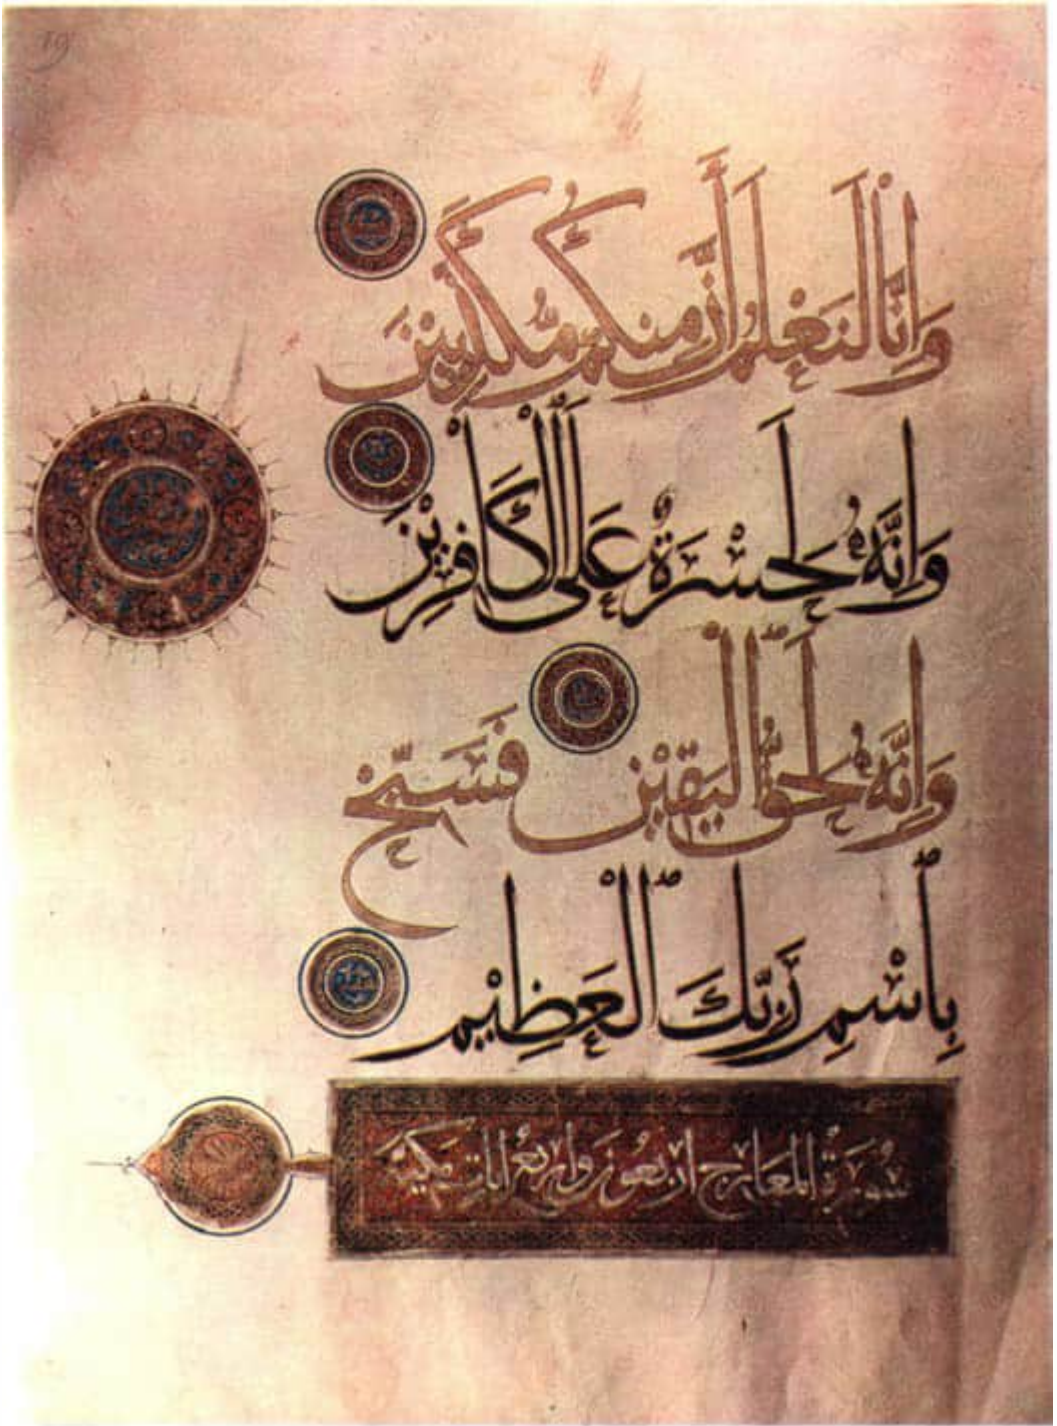 وَاِنَّا لَنَعْلَمُ اَنَّ مِنكُمْ مُّكَذِّبِيْنَ
وَاِنَّهُ لَحَسْرَةٌ عَلَى الْكَافِرِيْنَ
وَاِنَّهُ لَحَقُّ الْيَقِيْنِ فَسَبِّحْ
بِاسْمِ رَبِّكَ الْعَظِيْمِ
سُورَةُ المَعَارِج اَرْبَعُونَ وَاَرْبَعُ اٰيَاتٍ مَكِّيَّة